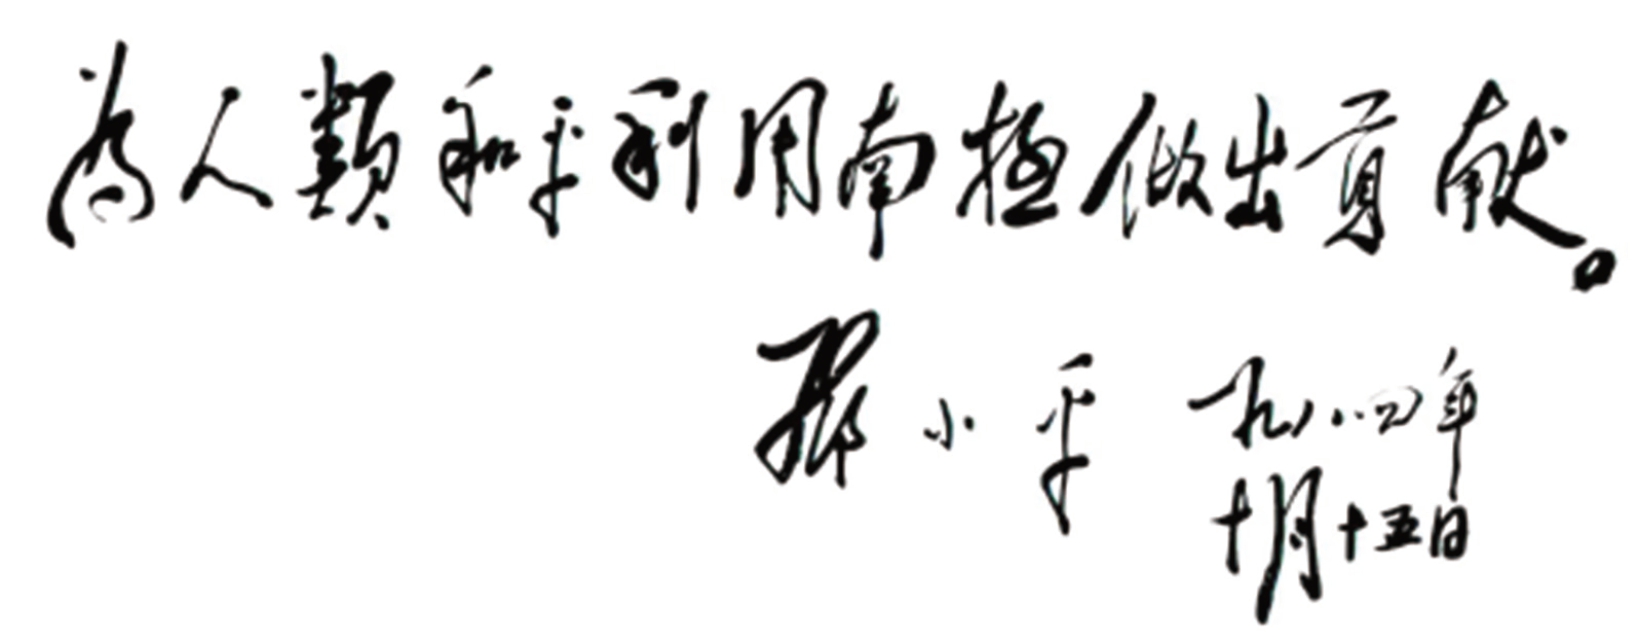 为人類和平利用南極做出貢献。
邓小平 一九八四年
十月十五日